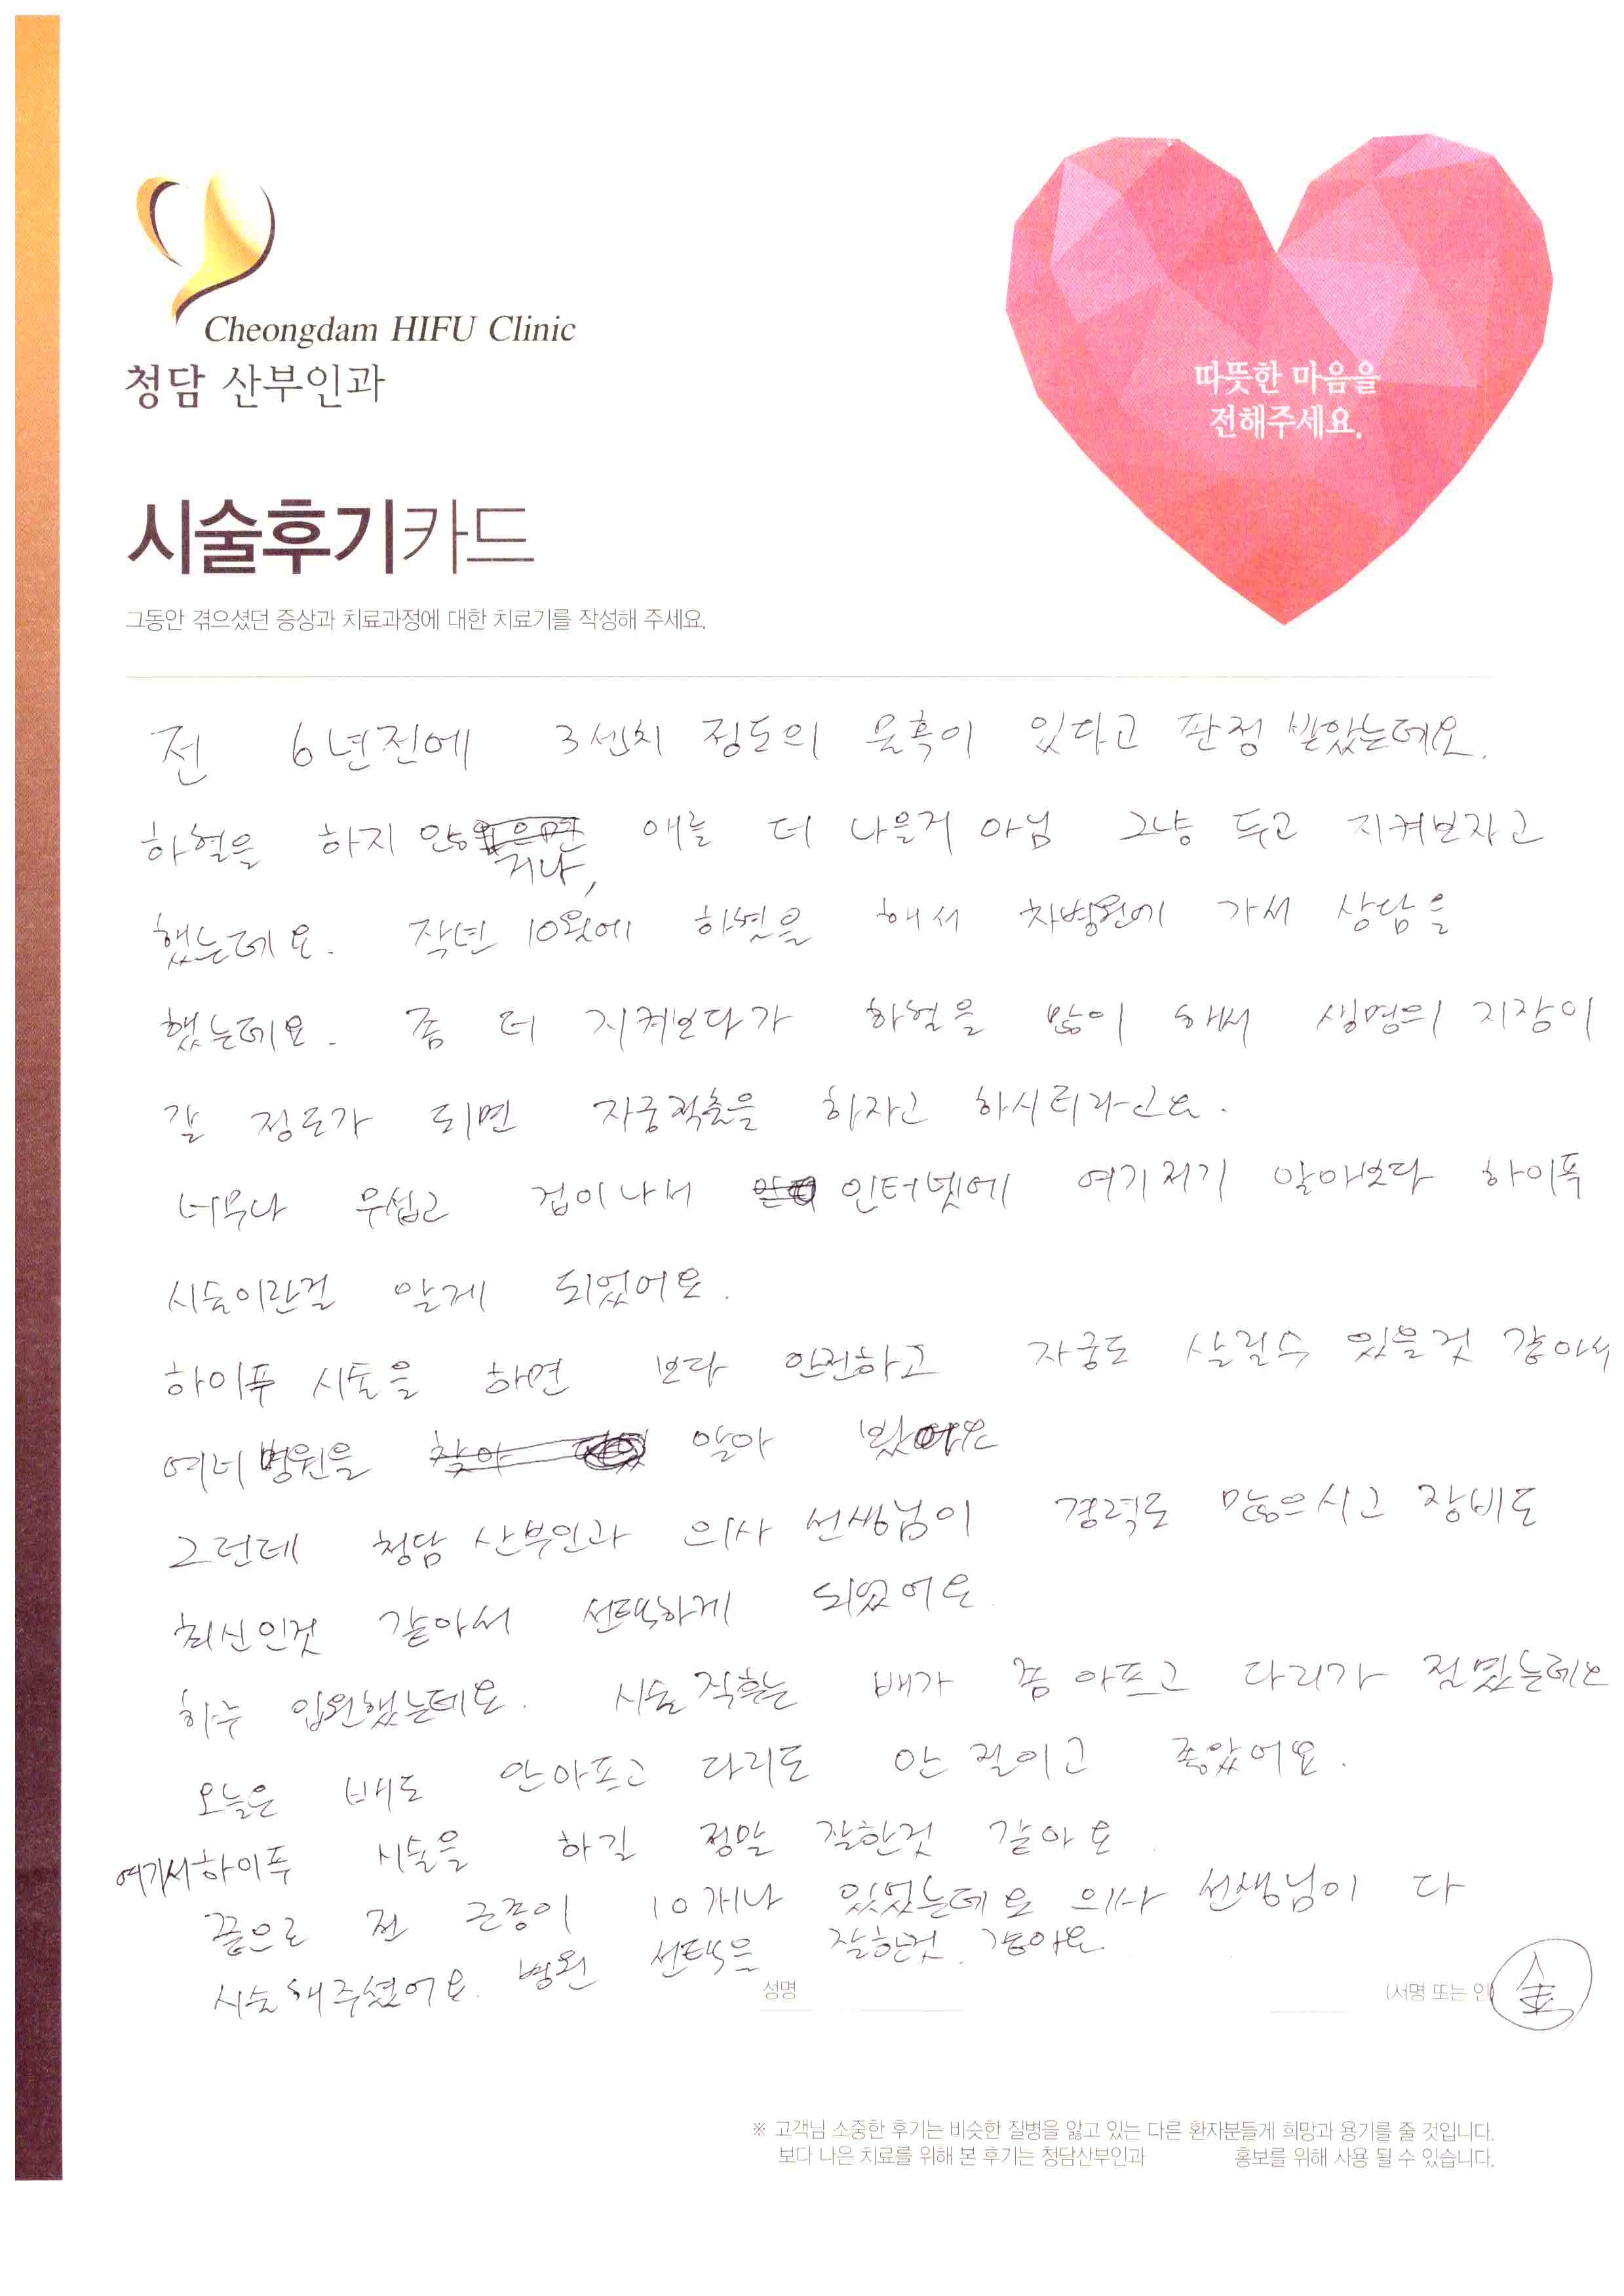 Cheongdam HIFU Clinic
청담 산부인과
따뜻한 마음을
전해주세요.
시술후기카드
그동안 겪으셨던 증상과 치료과정에 대한 치료기를 작성해 주세요.
전 6년전에 3센치 정도의 물혹이 있다고 판정 받았는데요.
하혈을 하지 않거나, 애를 더 나을거 아님 그냥 두고 지켜보자고
했는데요. 작년 10월에 하혈을 해서 차병원에 가서 상담을
했는데요. 좀 더 지켜보다가 하혈을 많이 해서 생명의 지장이
갈 정도가 되면 자궁적출을 하자고 하시더라고요.
너무나 무섭고 겁이나서 인터넷에 여기저기 알아보다 하이푸
시술이란걸 알게 되었어요.
하이푸 시술을 하면 보다 안전하고 자궁도 살릴수 있을것 같아서
여러 병원을 알아 봤어요
그런데 청담 산부인과 의사 선생님이 경력도 많으시고 장비도
최신인것 같아서 선택하게 되었어요.
하루 입원했는데요. 시술 직후는 배가 좀 아프고 다리가 절였는데요
오늘은 배도 안아프고 다리도 안 절이고 좋았어요.
여기서 하이푸 시술을 하길 정말 잘한것 같아요.
끝으로 전 근종이 10개나 있었는데요 의사 선생님이 다
시술해주셨어요. 병원 선택을 잘한것 같아요.
성명 (서명 또는 인)
金
※ 고객님 소중한 후기는 비슷한 질병을 앓고 있는 다른 환자분들게 희망과 용기를 줄 것입니다.
보다 나은 치료를 위해 본 후기는 청담산부인과 홍보를 위해 사용 될 수 있습니다.